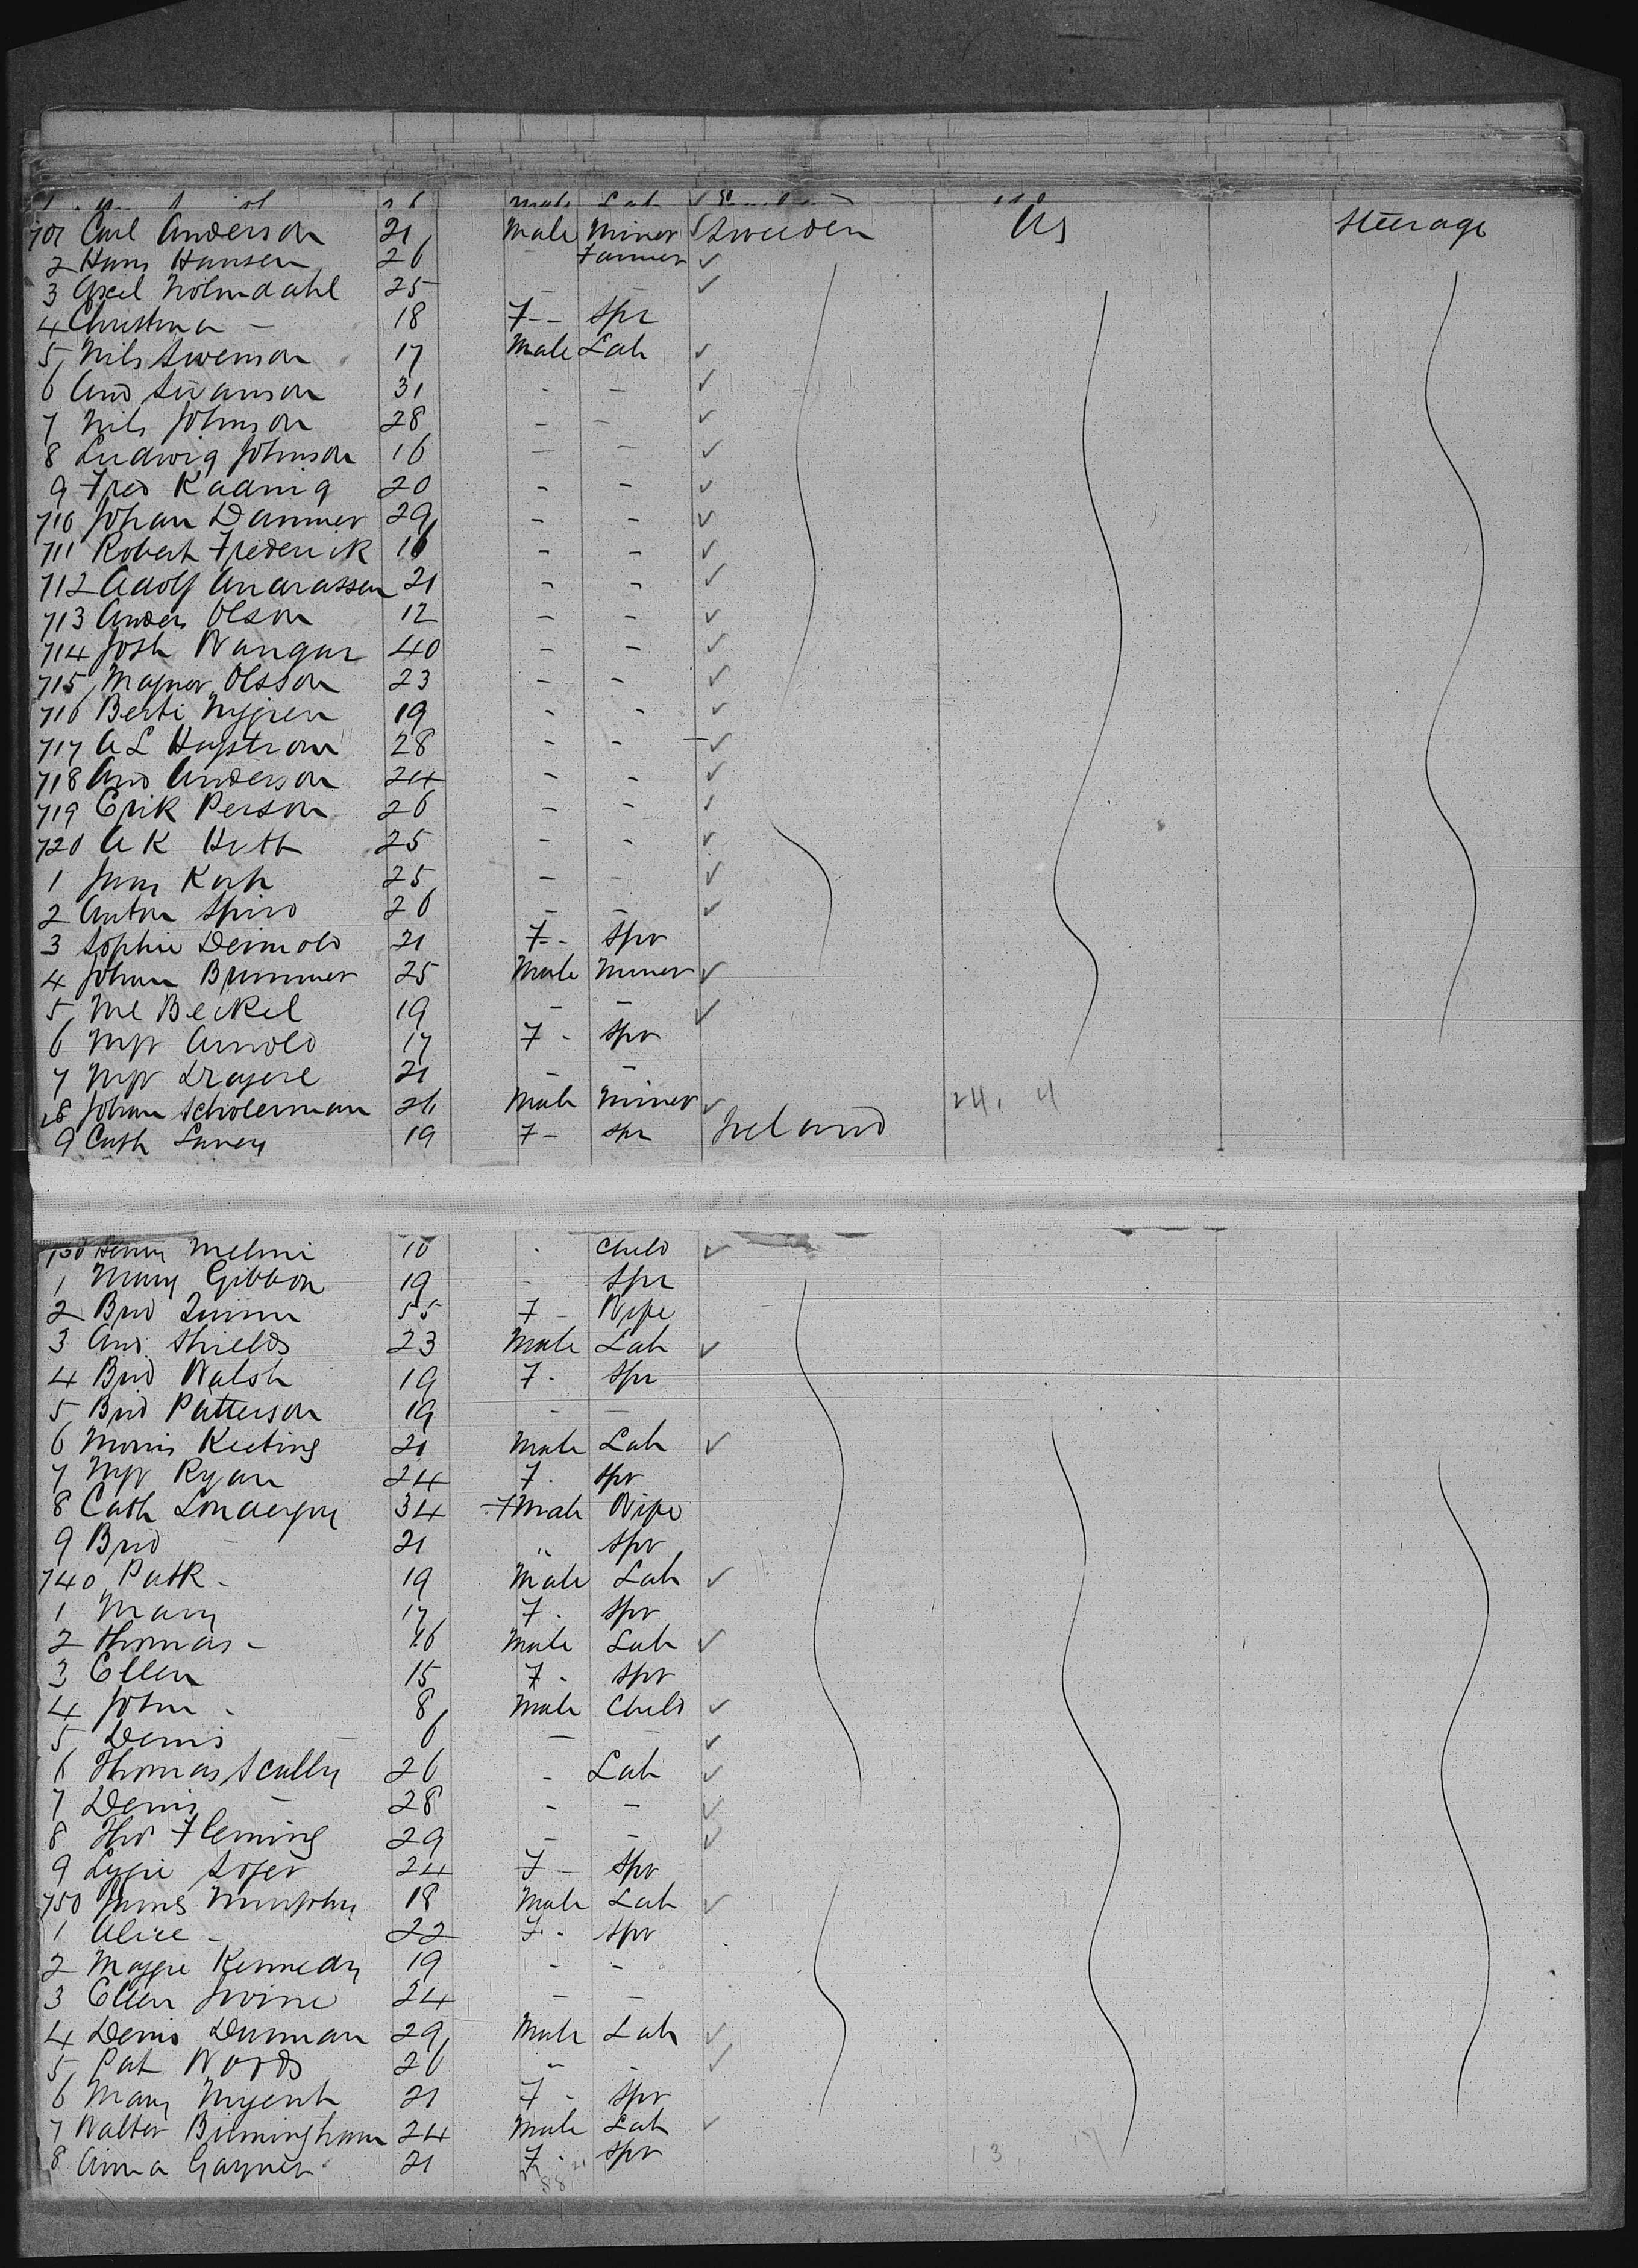 701 Carl Anderson 21 Male Miner Sweeden US Steerage
2 Hans Hansen 26 - Farmer
3 Axel Holmdahl 25 - -
4 Christina - 18 F-- Spr
5 Nils Swenson 17 Male Lab
6 And Swanson 31 - -
7 Nils Johnson 28 - -
8 Ludwig Johnson 16 - -
9 Fred Kadnig 20 - -
710 Johan Dammer 29 - -
711 Robert Frederick 16 - -
712 Adolf Andrassen 21 - -
713 Anders Olson 12 - -
714 Josh Wangar 40 - -
715 Magnor Olsson 23 - -
716 Berti Nygren 19 - -
717 A L Hagstrom 28 - -
718 And Anderson 24 - -
719 Erik Person 26 - -
720 A K Huth 25 - -
1 Jans Kosh 25 - -
2 Anton Spiro 26 - -
3 Sophie Deimold 21 F-- Spr
4 Johan Brummer 25 Male Miner
5 Ml Beikel 19 - -
6 Mgt Arnold 17 F - Spr
7 Mgt 21 - -
28 Johan Scholerman 26 Male Miner 24. 4
9 Cath 19 F- Spr Ireland
730 Henry 10 - Child
1 Mary Gibbon 19 - Spr
2 Brid Quinn 55 F - Wife
3 And Shields 23 Male Lab
4 Brid Walsh 19 F - Spr
5 Brid Patterson 19 - -
6 Morris Keeting 21 Male Lab
7 Mgt Ryan 24 F - Spr
8 Cath Londergan 34 F Male Wife
9 Brid - 21 " Spr
740 Patk - 19 Male Lab
1 Mary 17 F - Spr
2 Thomas - 16 Male Lab
3 Ellen 15 F - Spr
4 John - 8 Male Child
5 Denis - 6 - -
6 Thomas Scully 26 - Lab
7 Denis - 28 - -
8 Tho Fleming 29 - -
9 Lizzie 24 F - Spr
750 James Murphy 18 Male Lab
1 Alice - 22 F - Spr
2 Maggie Kennedy 19 - -
3 Ellen Irvine 24 - -
4 Denis 29 Male Lab
5 Pat Woods 26 " -
6 Mary Nugent 21 F - Spr
7 Walter Birmingham 24 Male Lab
8 Anna Gaynor 21 F - Spr 13. 17